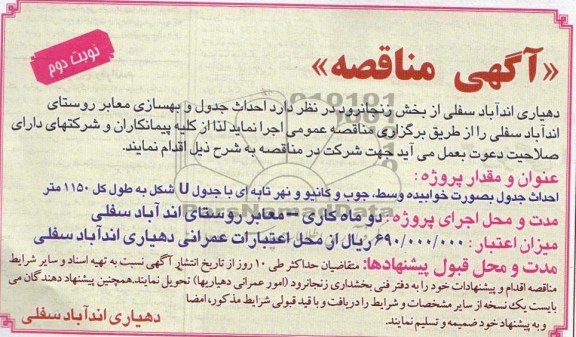 نوبت دوم
«آگهی مناقصه»
دهیاری اندآباد سفلی از بخش زنجانرود در نظر دارد احداث جدول و بهسازی معابر روستای
اندآباد سفلی را از طریق برگزاری مناقصه عمومی اجرا نماید لذا از کلیه پیمانکاران و شرکتهای دارای
صلاحیت دعوت بعمل می آید جهت شرکت در مناقصه به شرح ذیل اقدام نمایند.
عنوان و مقدار پروژه :
احداث جدول بصورت خوابیده وسط، جوب و کانیو و نهر تابه ای با جدول U شکل به طول کل ۱۱۵۰ متر
مدت و محل اجرای پروژه : دو ماه کاری – معابر روستای اند آباد سفلی
میزان اعتبار : ۶۹۰/۰۰۰/۰۰۰ ریال از محل اعتبارات عمرانی دهیاری اندآباد سفلی
مدت و محل قبول پیشنهادها: متقاضیان حداکثر طی ۱۰ روز از تاریخ انتشار آگهی نسبت به تهیه اسناد و سایر شرایط
مناقصه اقدام و پیشنهادات خود را به دفتر فنی بخشداری زنجانرود (امور عمرانی دهیاریها) تحویل نمایند.همچنین پیشنهاد دهندگان می
بایست یک نسخه از سایر مشخصات و شرایط را دریافت و با قید قبولی شرایط مذکور، امضا
و به پیشنهاد خود ضمیمه و تسلیم نمایند.
دهیاری اندآباد سفلی